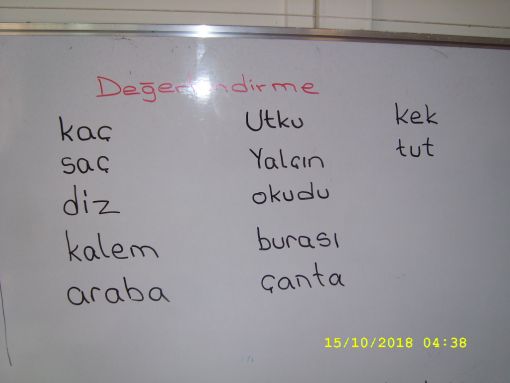 Değerlendirme
kaç
saç
diz
kalem
araba
Utku
Yalçın
okudu
burası
çanta
kek
tut
15/10/2018 04:38